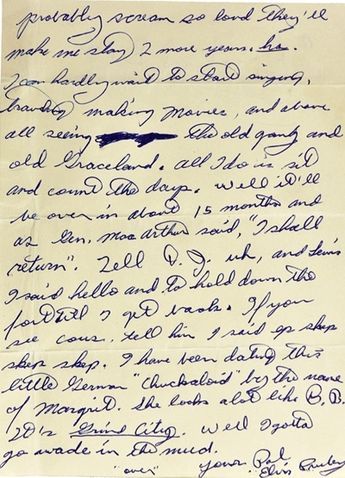 probably scream so loud they'll
make me stay 2 more years. ha.
I can hardly wait to start singing,
traveling making Movies, and above
all seeing the old gang and
old Graceland. all I do is sit
and count the days. Well it'll
be over in about 15 months and
as Gen. Mac Arthur said, "I shall
return". Tell D. J. uh, and Lewis
I said hello and to hold down the
fort till I get back. If you
see cous. tell him I said ep skep
skep skep. I have been dating this
little German "Chuckaloid" by the name
of Margrit. She looks alot like B.B.
It's Grind City. Well I gotta
go wade in the mud.
"over" yours Pal
Elvis Presley